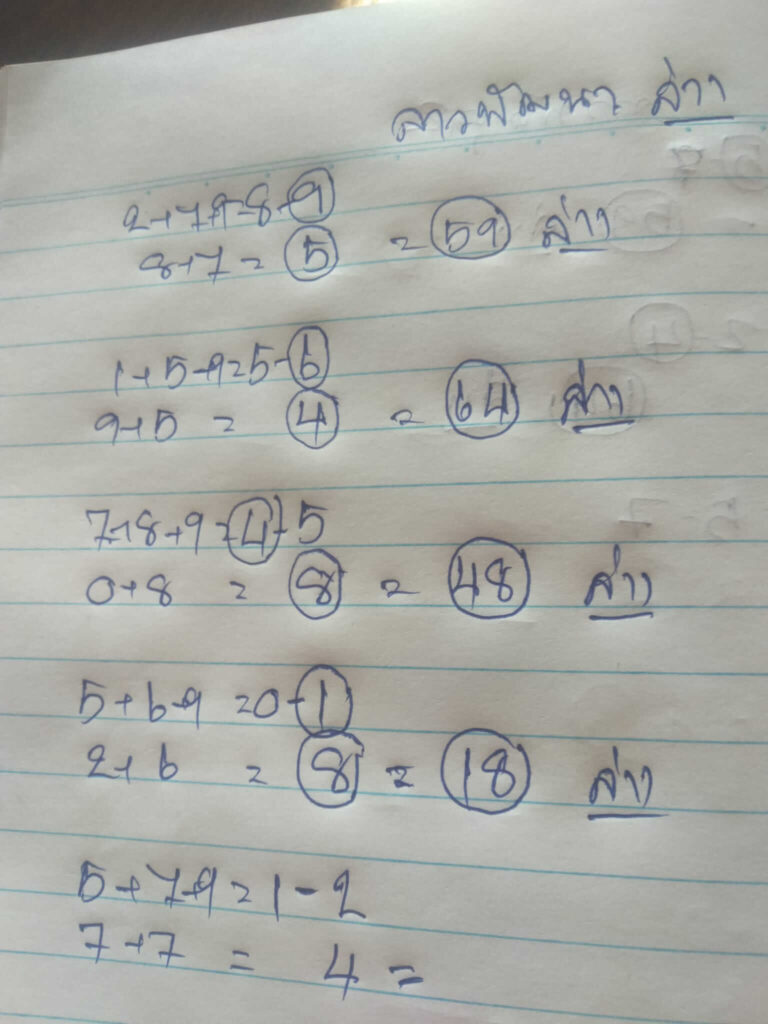 ลาวพัฒนา ล่าง
2+7+9=8-9
8+7= 5 = 59 ล่าง
1+5+9=5-6
9+5 = 4 = 64 ล่าง
7+8+9=4-5
0+8 = 8 = 48 ล่าง
5+6+9 =0-1
2+6 = 8 = 18 ล่าง
5+7+9=1-2
7+7 = 4 =